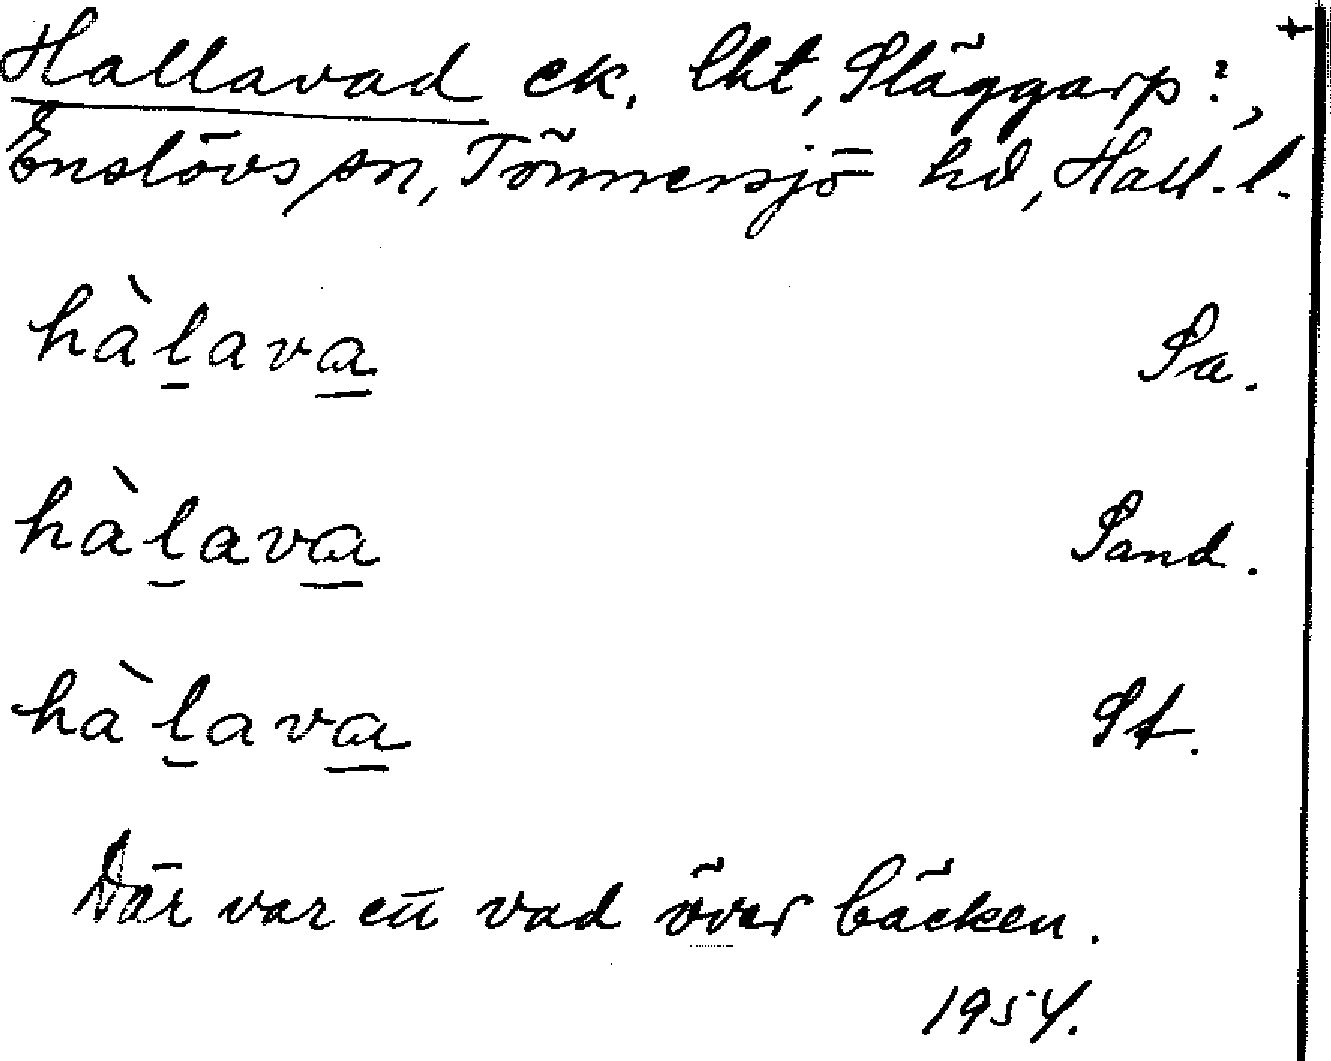 +
Hallavad ek. lht, Släggarp?,
Enslövs sn, Tönnersjö hd, Hall. l.
hàl̠ava̠ Sa.
hàl̠ava̠ Sand.
hàl̠ava̠ St.
Där var ett vad över bäcken.
1954.